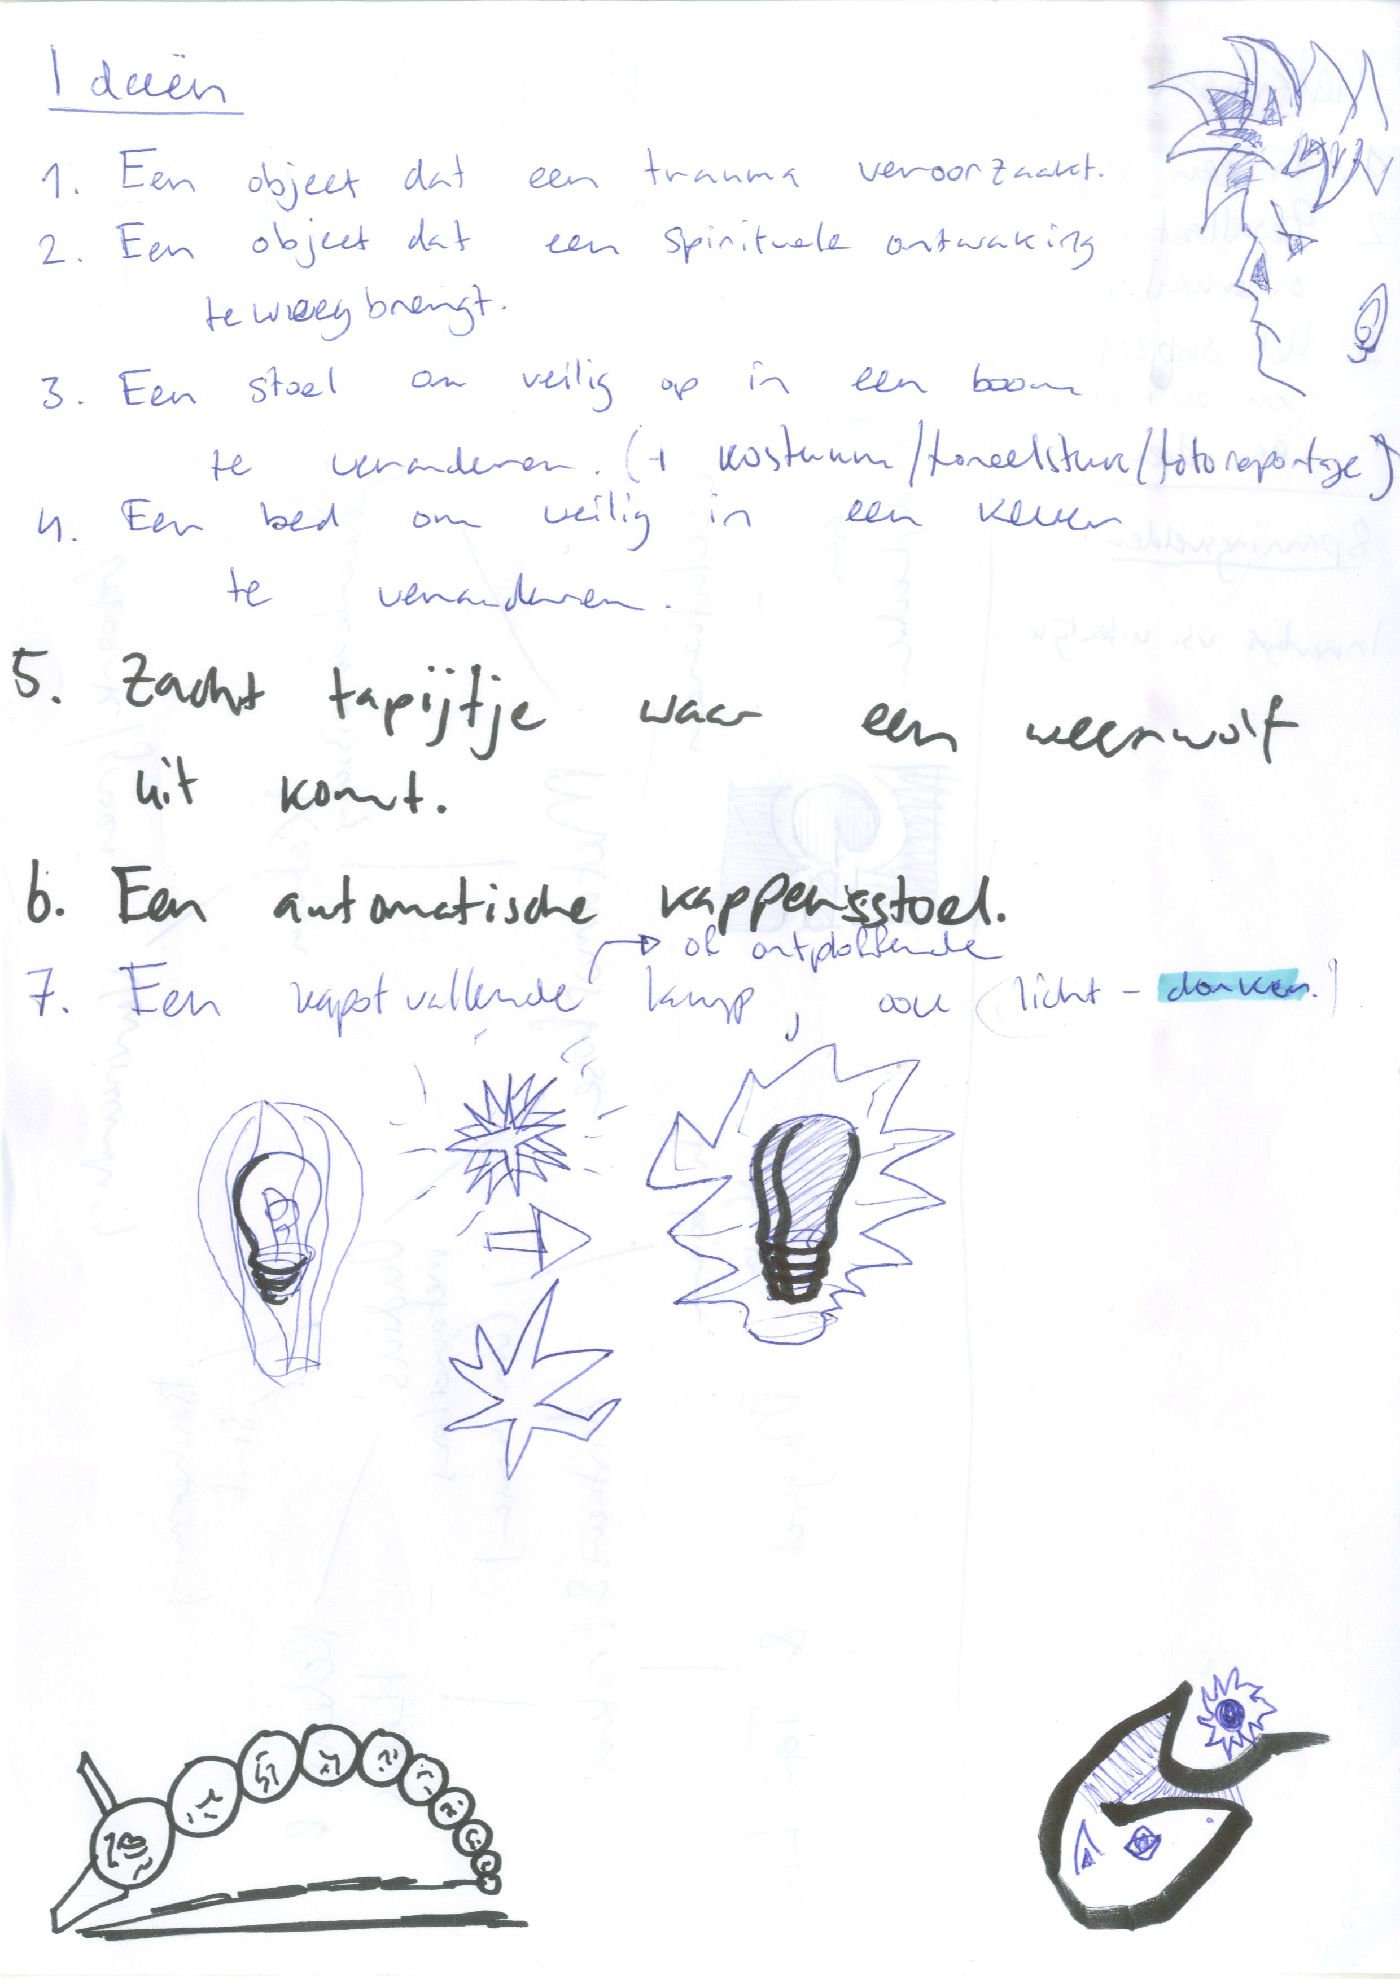 Ideeën
1. Een object dat een trauma veroorzaakt.
2. Een object dat een spirituele ontwaking
teweeg brengt.
3. Een stoel om veilig op in een boom
te veranderen. (+ kostuum/toneelstuk/fotoreportage)
4. Een bed om veilig in een kever
te veranderen.
5. Zacht tapijtje waar een weerwolf
uit komt.
6. Een automatische kappersstoel.
of ontploffende
7. Een kapot vallende lamp, ook (licht - donker.)